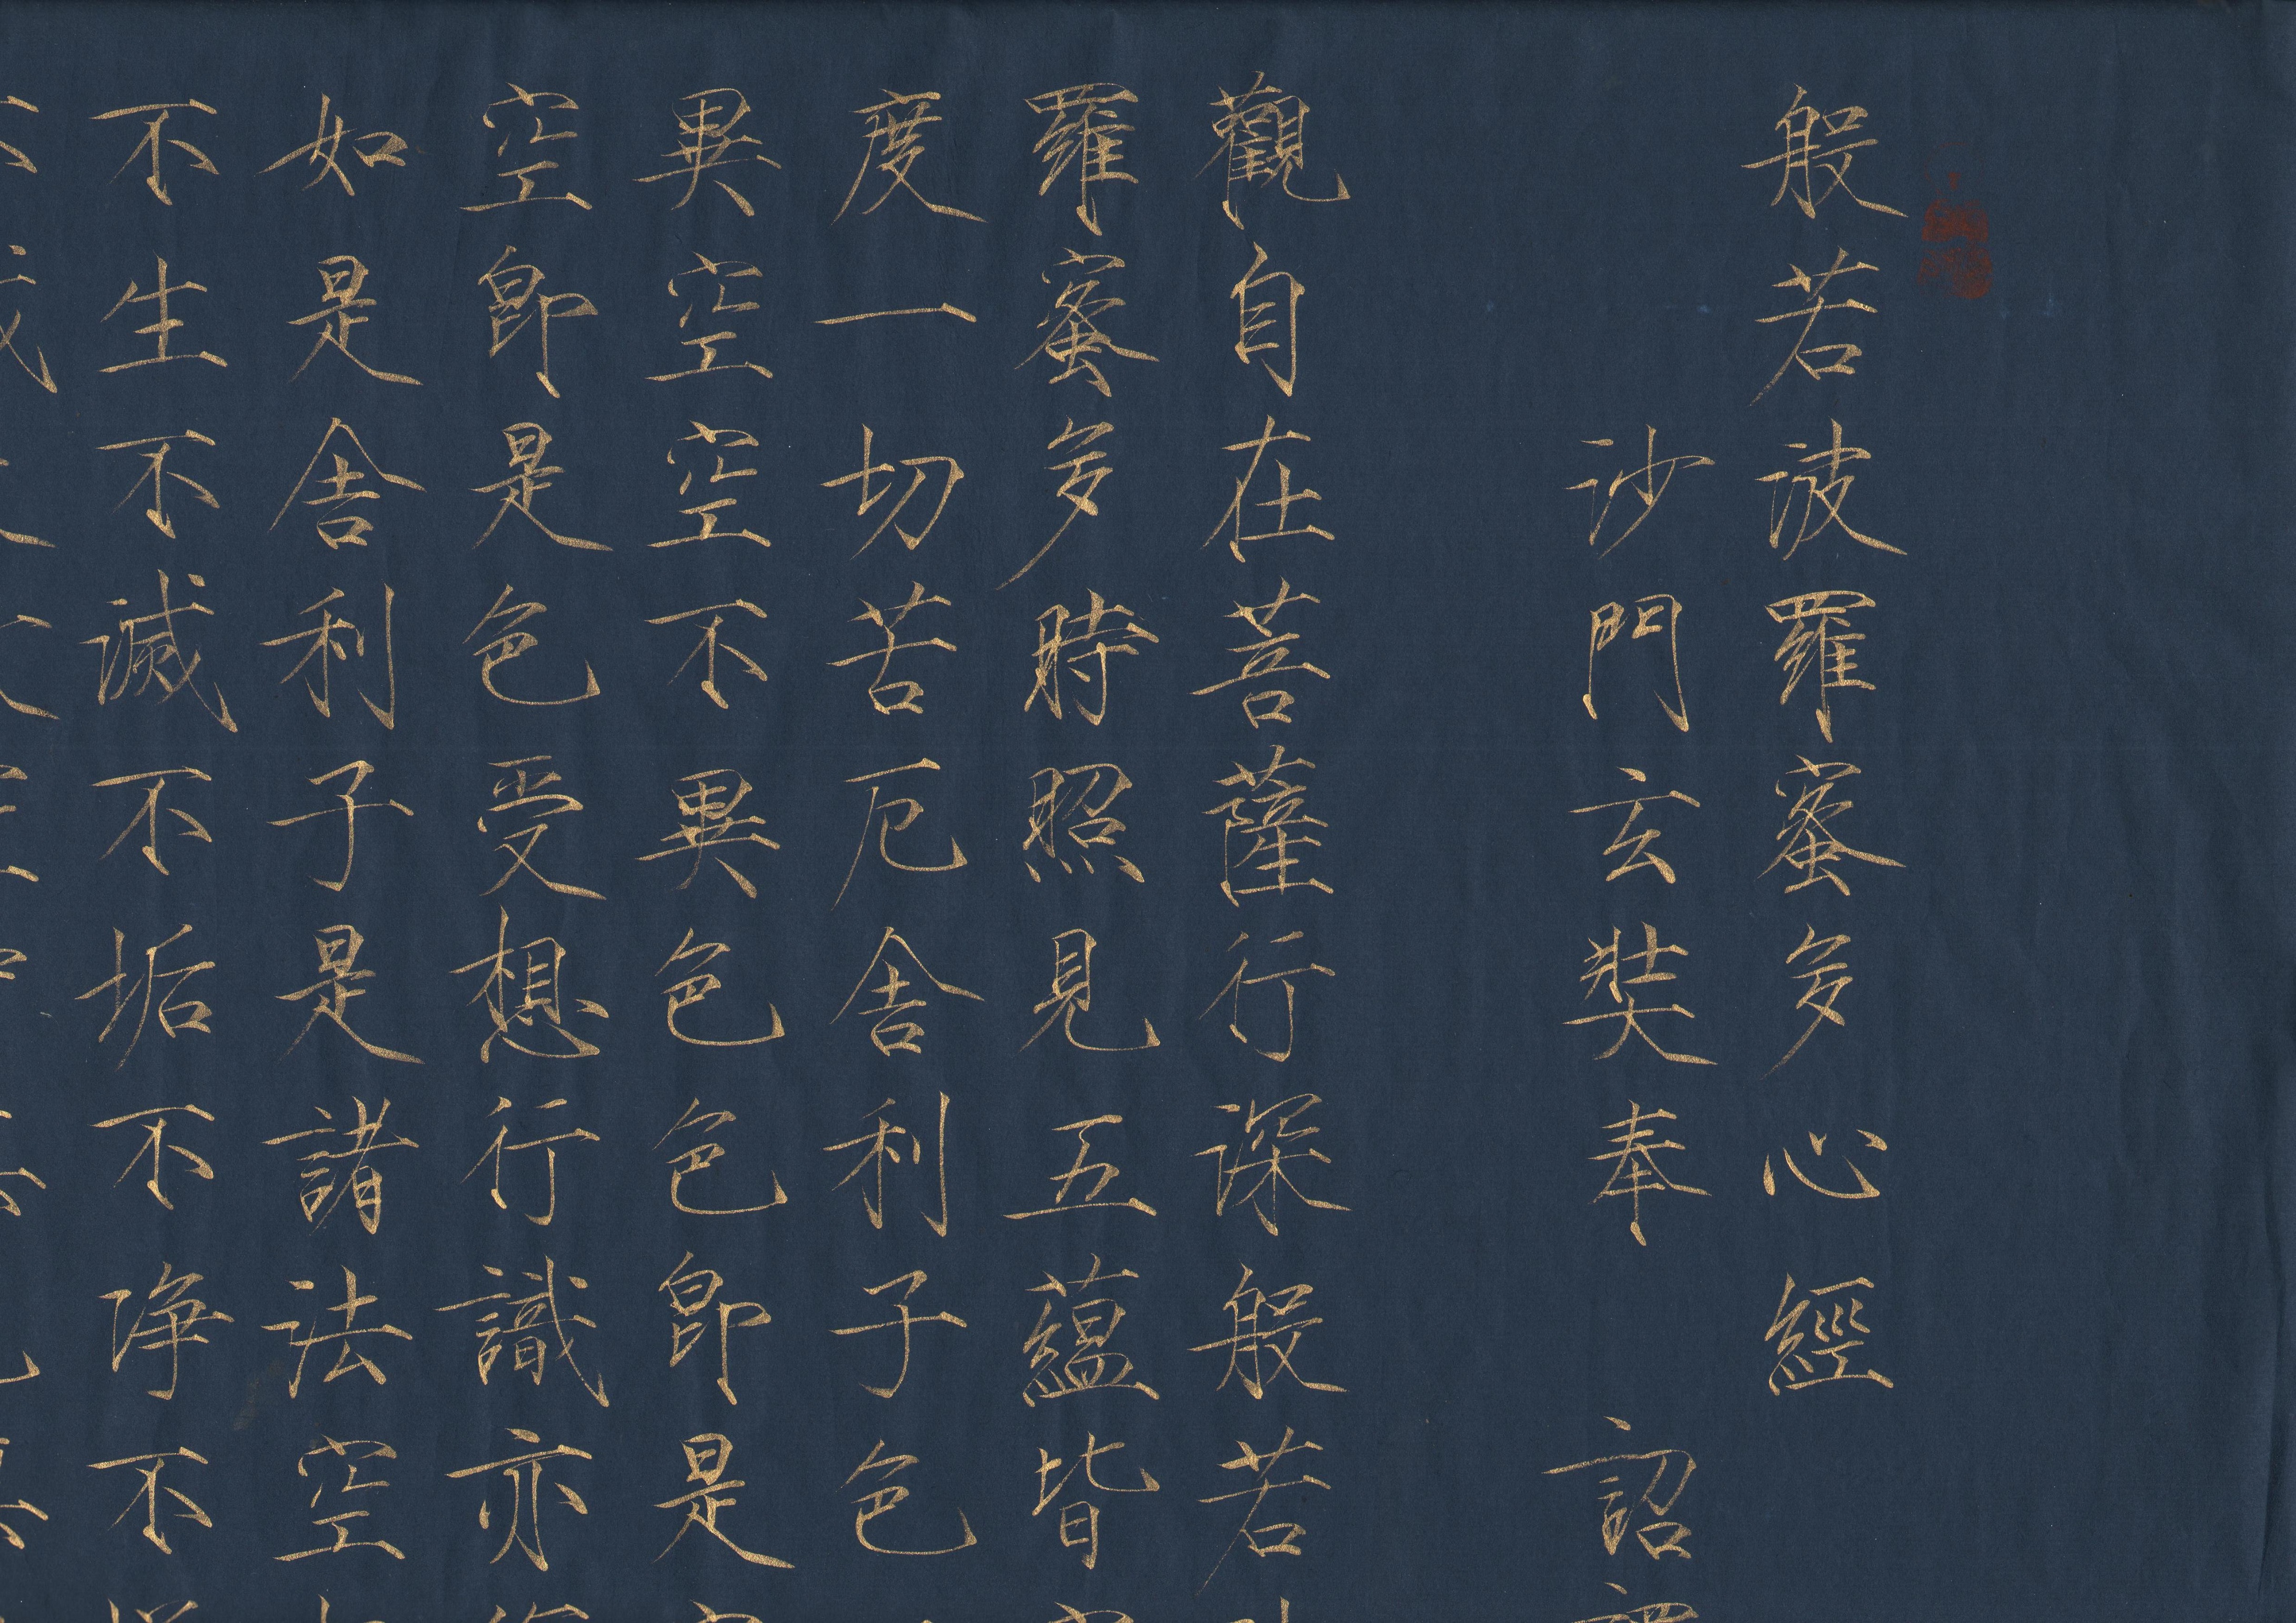 般若波羅蜜多心經
沙門玄奘奉 詔
觀自在菩薩行深般若
羅蜜多時照見五蘊皆
度一切苦厄舍利子色
異空空不異色色即是
空即是色受想行識亦
如是舍利子是諸法空
不生不滅不垢不淨不